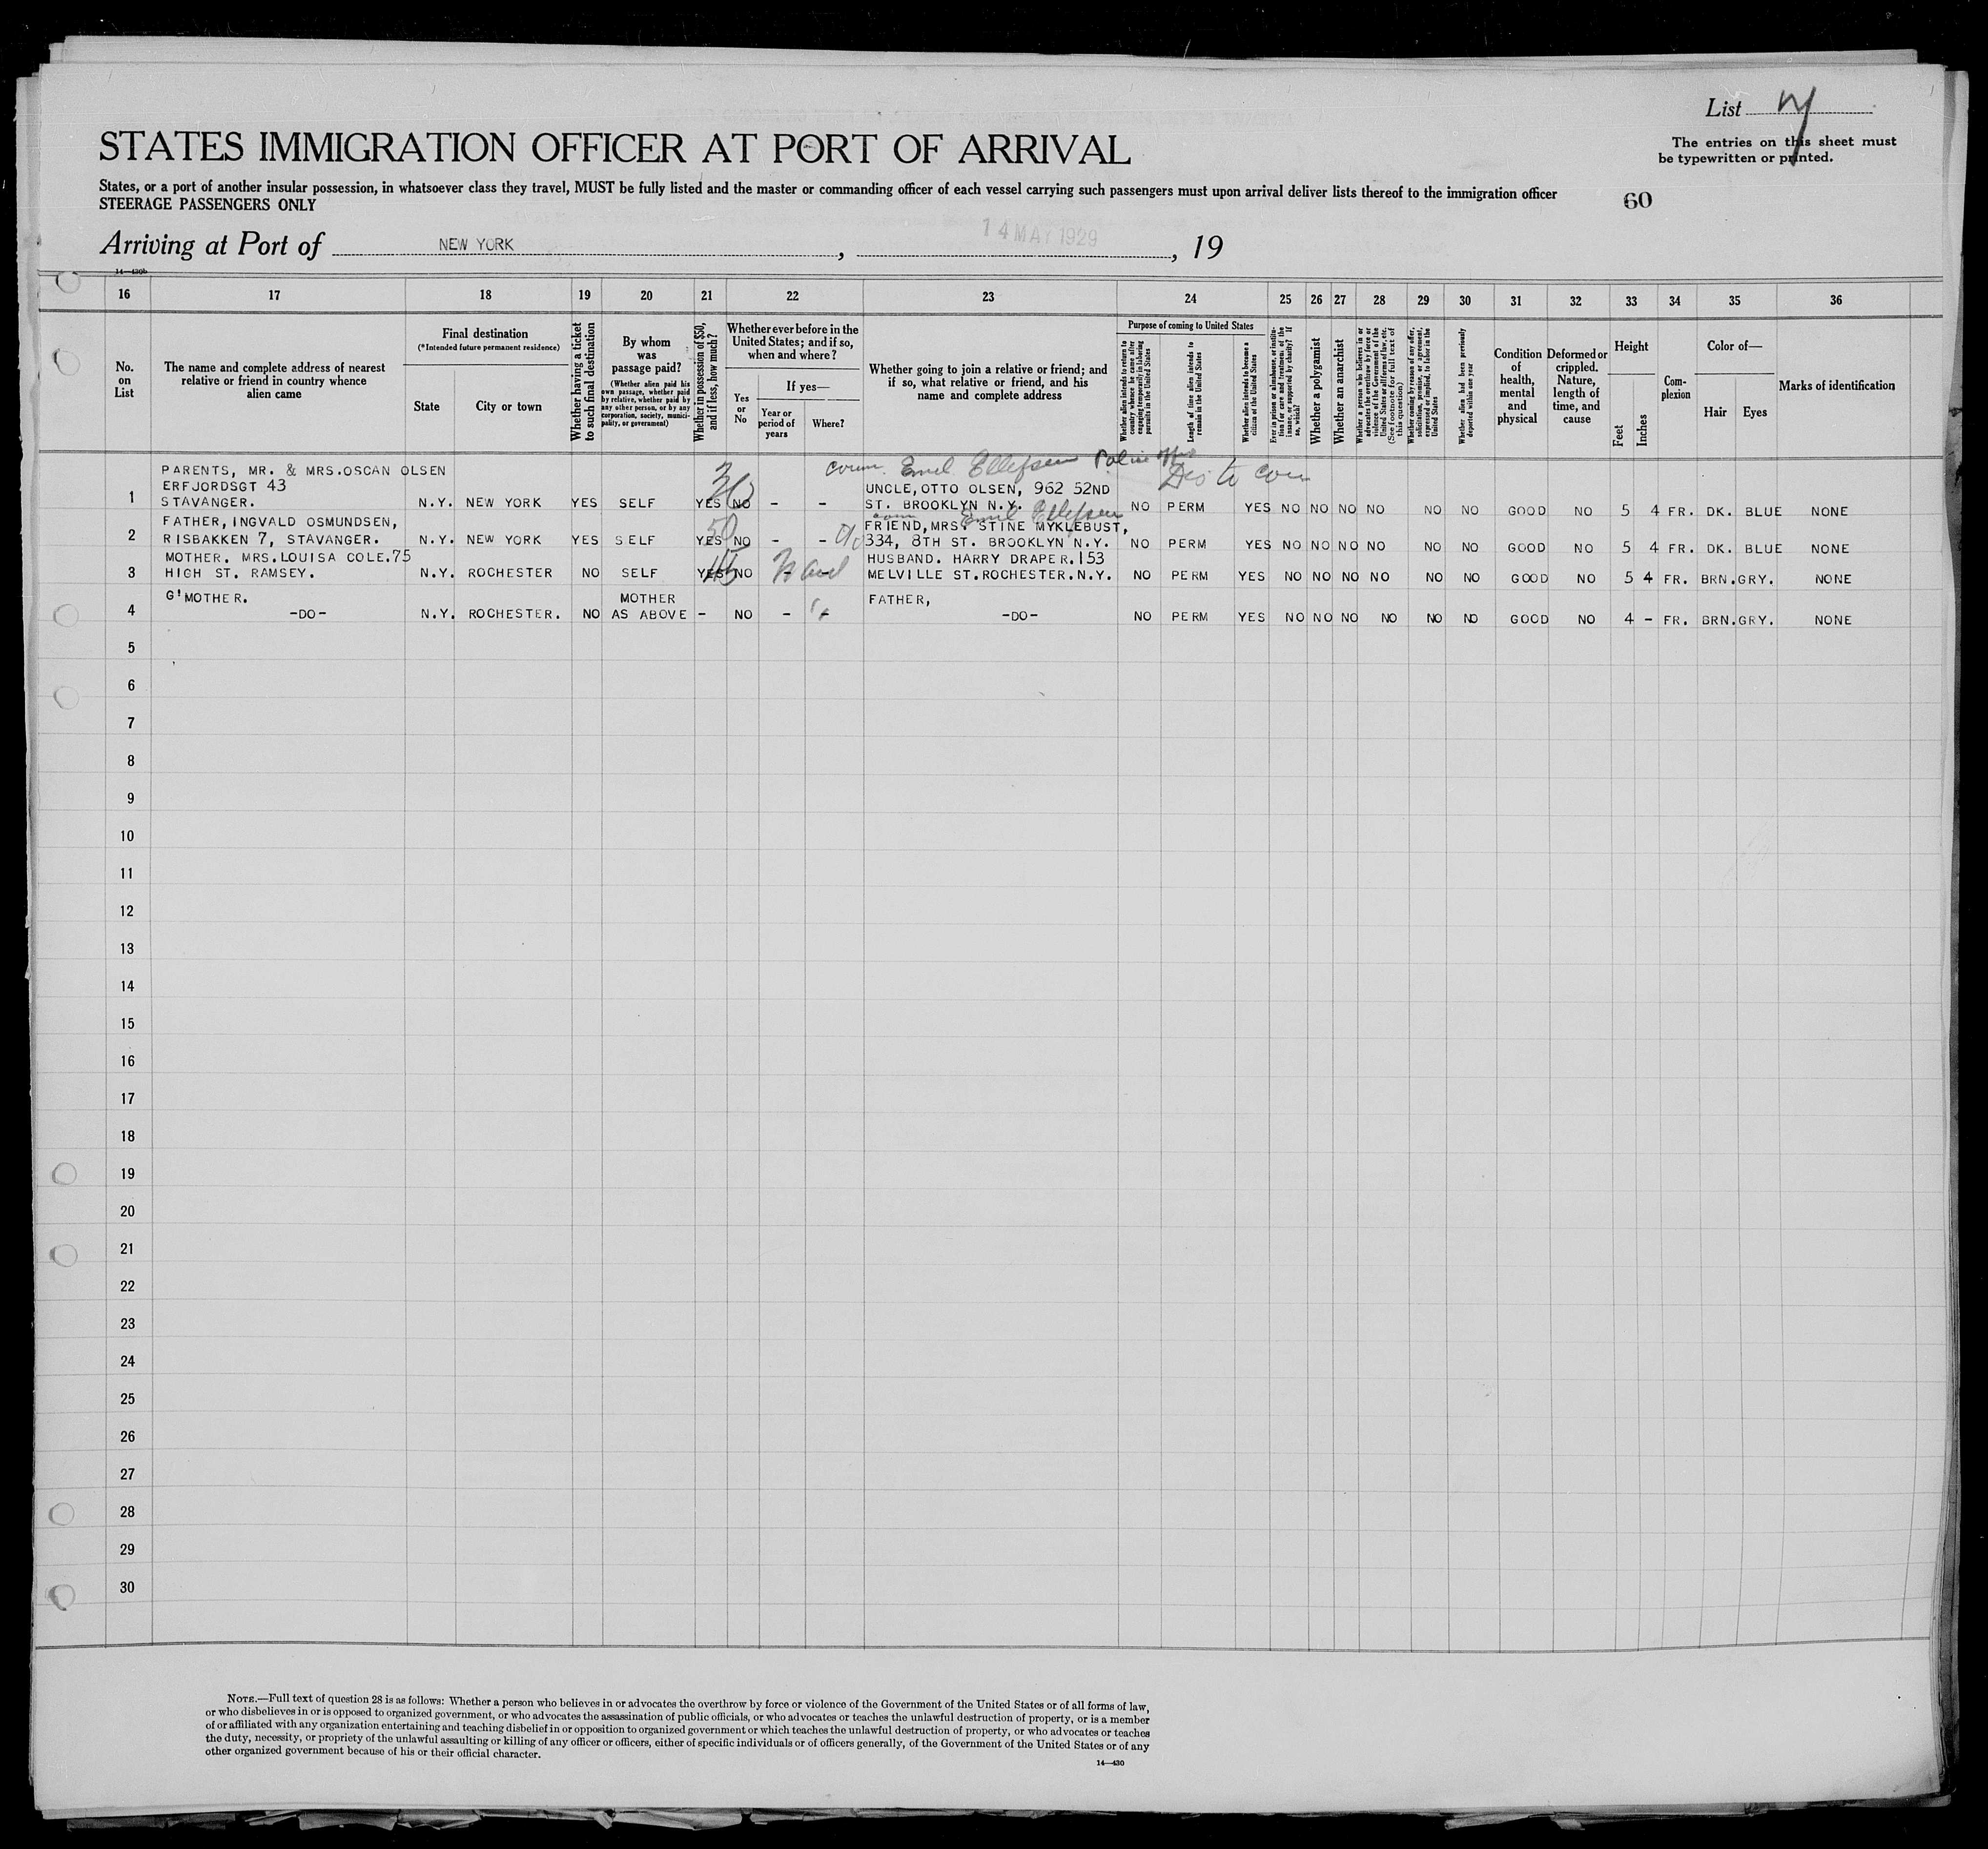 List
The entries on this sheet must
be typewritten or printed.
STATES IMMIGRATION OFFICER AT PORT OF ARRIVAL
States, or a port of another insular possession, in whatsoever class they travel, MUST be fully listed and the master or commanding officer of each vessel carrying such passengers must upon arrival deliver lists thereof to the immigration officer
STEERAGE PASSENGERS ONLY
60
Arriving at Port of NEW YORK, 14 MAY 1929, 19
14—430b
16 17 18 19 20 21 22 23 24 25 26 27 28 29 30 31 32 33 34 35 36
No.
on
List
The name and complete address of nearest
relative or friend in country whence
alien came
Final destination
(*Intended future permanent residence)
State
City or town
Whether having a ticket
to such final destination
By whom
was
passage paid?
(Whether alien paid his
own passage, whether paid
by relative, whether paid by
any other person, or by any
corporation, society, munici-
pality, or government)
Whether in possession of $50,
and if less, how much?
Whether ever before in the
United States; and if so,
when and where?
Yes
or
No
If yes—
Year or
period of
years
Where?
Whether going to join a relative or friend; and
if so, what relative or friend, and his
name and complete address
Purpose of coming to United States
Whether alien intends to return to
country whence he came after
engaging temporarily in laboring
pursuits in the United States
Length of time alien intends to
remain in the United States
Whether alien intends to become a
citizen of the United States
Ever in prison or almshouse, or institu-
tion for care and treatment of the
insane, or supported by charity? If
so, which?
Whether a polygamist
Whether an anarchist
Whether a person who believes in or
advocates the overthrow by force or
violence of the Government of the
United States or all forms of law, etc.
(See footnote for full text of
this question)
Whether coming by reason of any offer,
solicitation, promise, or agreement,
expressed or implied, to labor in the
United States
Whether alien had been previously
deported within one year
Condition
of
health,
mental
and
physical
Deformed or
crippled.
Nature,
length of
time, and
cause
Height
Feet
Inches
Com-
plexion
Color of—
Hair
Eyes
Marks of identification
Emil Ellefsen Police
PARENTS, MR. & MRS.OSCAN OLSEN
ERFJORDSGT 43 UNCLE,OTTO OLSEN, 962 52ND
1 STAVANGER. N.Y. NEW YORK YES SELF YES NO - - ST. BROOKLYN N.Y. NO PERM YES NO NO NO NO NO NO GOOD NO 5 4 FR. DK. BLUE NONE
Emil Ellefsen
FATHER, INGVALD OSMUNDSEN, 50 FRIEND,MRS. STINE MYKLEBUST,
2 RISBAKKEN 7, STAVANGER. N.Y. NEW YORK YES SELF YES NO - - 334, 8TH ST. BROOKLYN N.Y. NO PERM YES NO NO NO NO NO NO GOOD NO 5 4 FR. DK. BLUE NONE
MOTHER. MRS.LOUISA COLE.75 HUSBAND. HARRY DRAPER.153
3 HIGH ST. RAMSEY. N.Y. ROCHESTER NO SELF YES NO - - MELVILLE ST.ROCHESTER.N.Y. NO PERM YES NO NO NO NO NO NO GOOD NO 5 4 FR. BRN.GRY. NONE
G'MOTHER. MOTHER FATHER,
4 -DO- N.Y. ROCHESTER. NO AS ABOVE - NO - -DO- NO PERM YES NO NO NO NO NO NO GOOD NO 4 - FR. BRN.GRY. NONE
5
6
7
8
9
10
11
12
13
14
15
16
17
18
19
20
21
22
23
24
25
26
27
28
29
30
NOTE.—Full text of question 28 is as follows: Whether a person who believes in or advocates the overthrow by force or violence of the Government of the United States or of all forms of law,
or who disbelieves in or is opposed to organized government, or who advocates the assassination of public officials, or who advocates or teaches the unlawful destruction of property, or is a member
of or affiliated with any organization entertaining and teaching disbelief in or opposition to organized government or which teaches the unlawful destruction of property, or who advocates or teaches
the duty, necessity, or propriety of the unlawful assaulting or killing of any officer or officers, either of specific individuals or of officers generally, of the Government of the United States or of any
other organized government because of his or their official character.
14—430